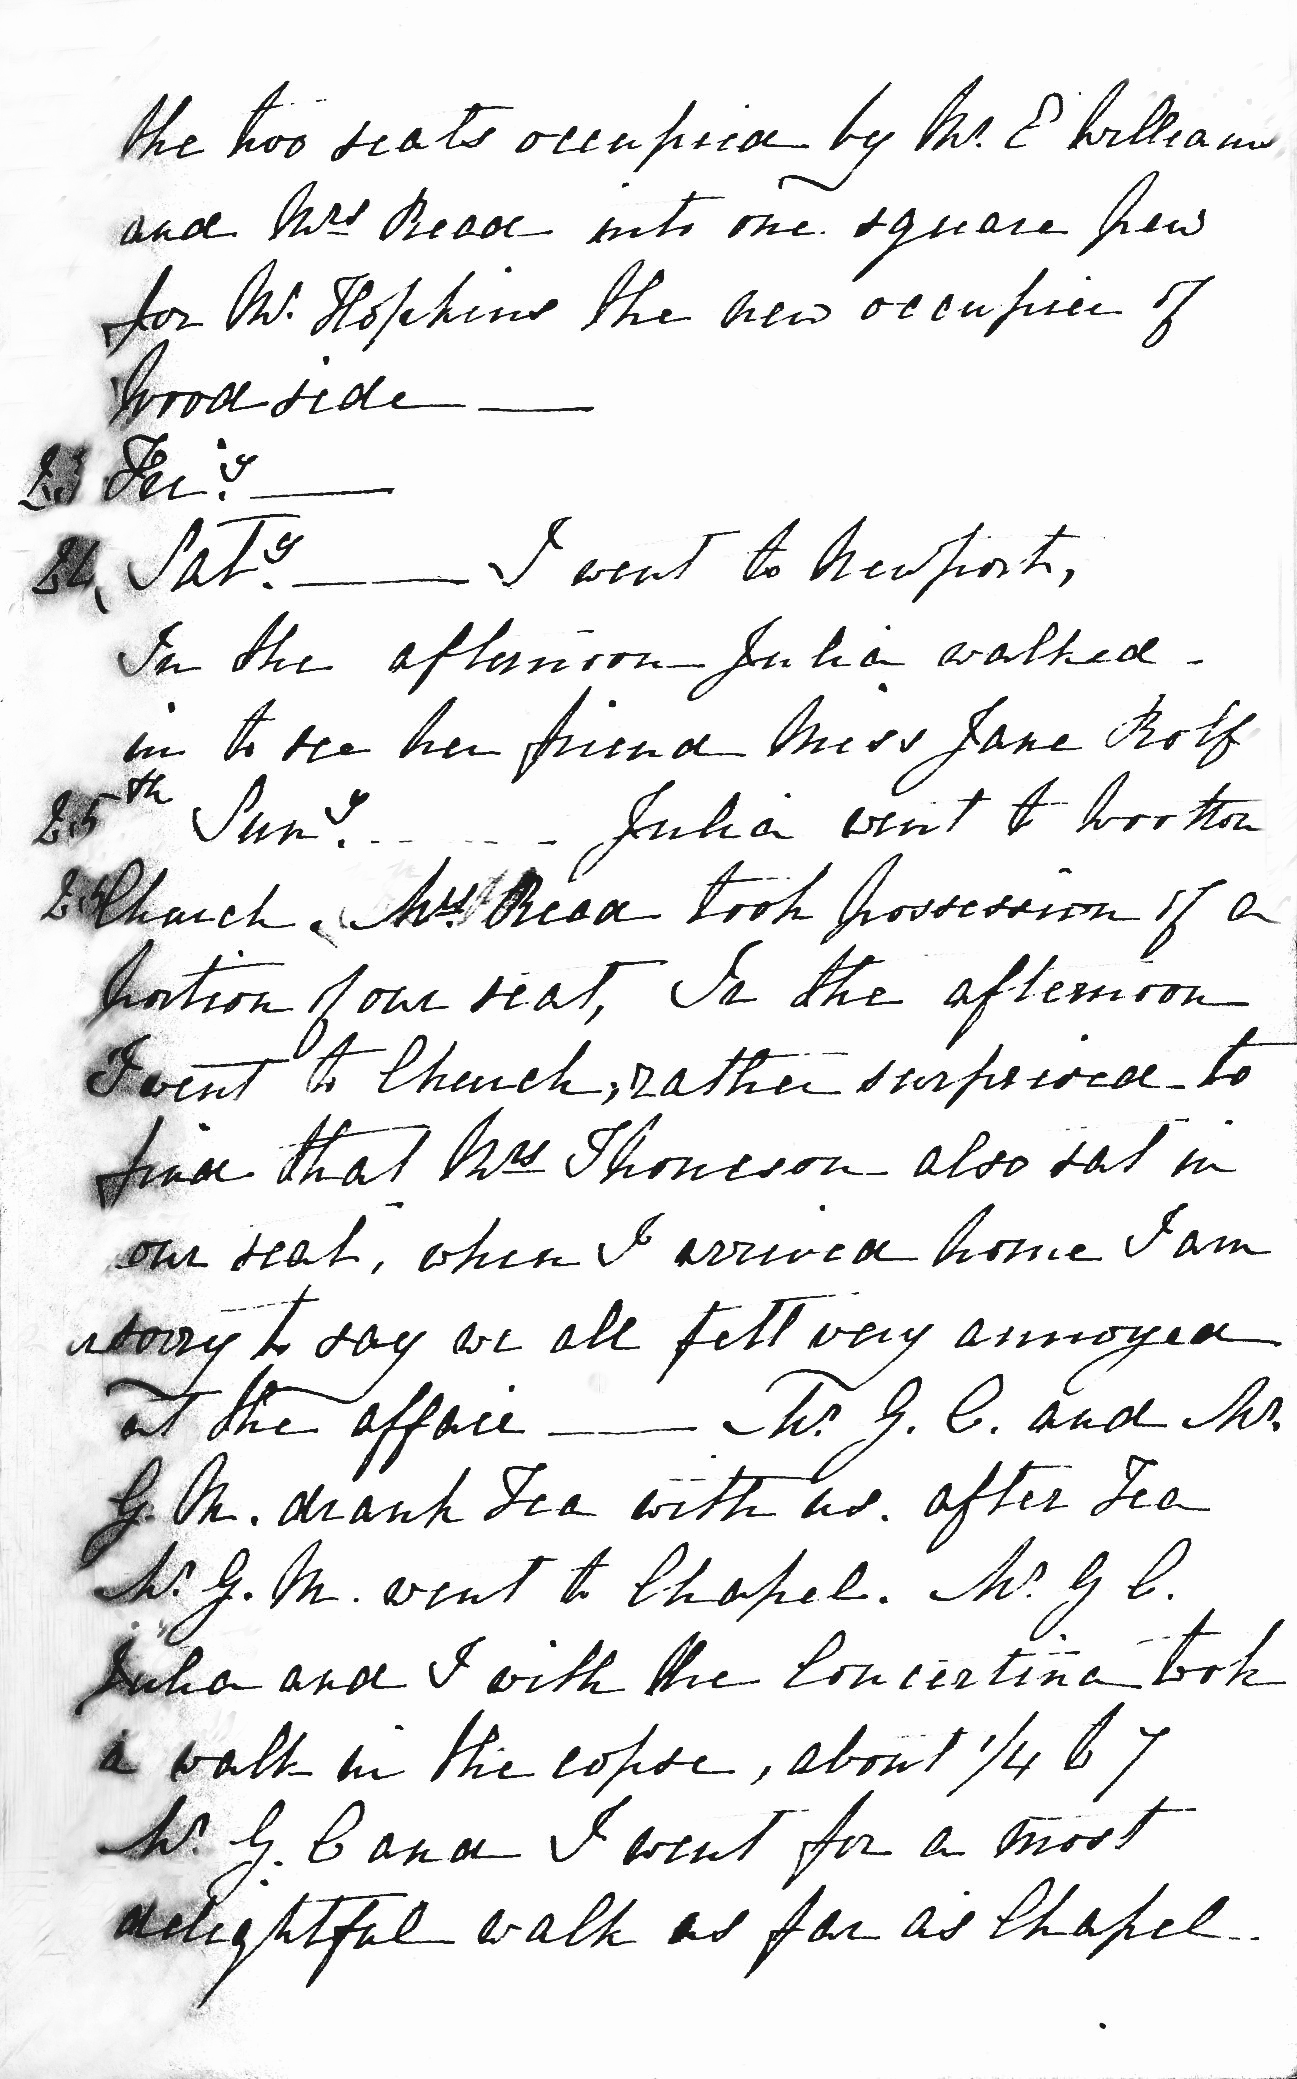 the two seats occupied by Mr. E Williams
and Mrs Read into one square pew
for Mr. Hopkins the new occupier of
Woodside —
23 Friy. —
24 Saty. — I went to Newport,
In the afternoon Julia walked -
in to see her friend Miss Jane Rolf
25th Suny. - - - - Julia went to Wootton
Church. Mrs Read took possession of a
portion of our seat, In the afternoon
I went to Church, rather surprised to
find that Mrs Thomeson also sat in
our seat, when I arrived home I am
sorry to say we all felt very annoyed
at the affair — Mr. G. C. and Mr.
G. M. drank Tea with us. after Tea
Mr. G. M. went to Chapel. Mr. G C.
Julia and I with the Concertina took
a walk in the copse, about 1/4 to 7
Mr. G. C and I went for a most
delightful walk as far as Chapel..